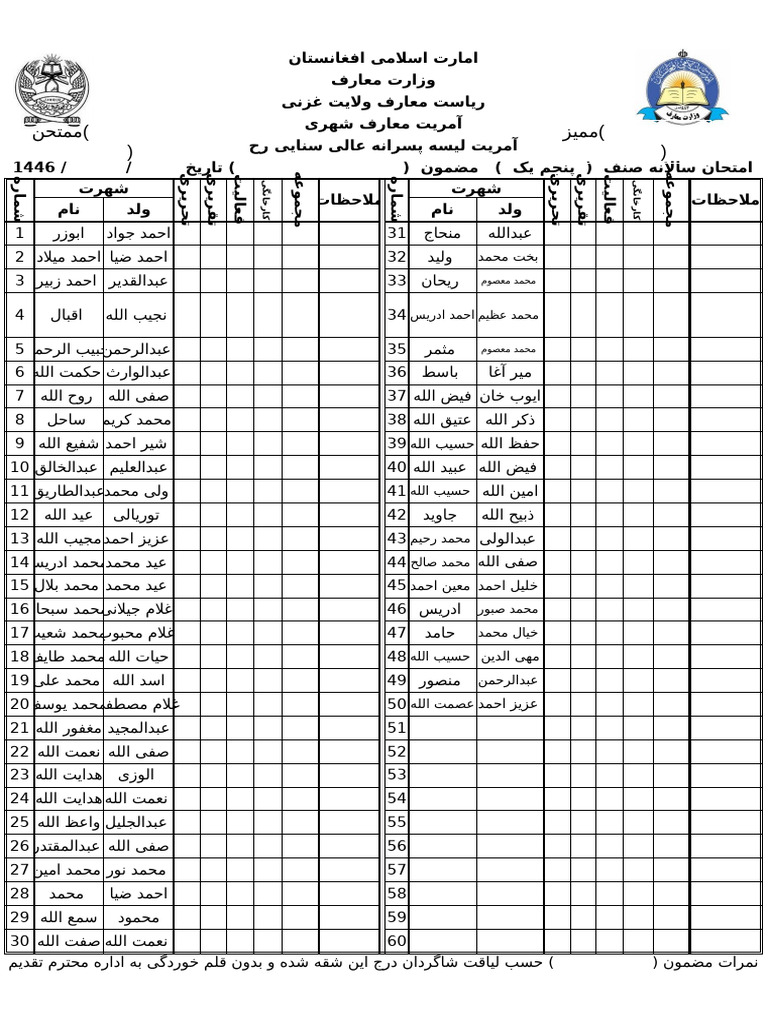 امارت اسلامی افغانستان
وزارت معارف
ریاست معارف ولایت غزنی
آمریت معارف شهری
ممیز( )
ممتحن( )
آمریت لیسه پسرانه عالی سنایی رح
امتحان سالانه صنف ( پنجم یک ) مضمون ( ) تاریخ / / 1446
شماره شهرت تحریری تقریری فعالیت کارخانگی مجموعه ملاحظات شماره شهرت تحریری تقریری فعالیت کارخانگی مجموعه ملاحظات
نام ولد نام ولد
1 ابوزر احمد جواد 31 منحاج عبدالله
2 احمد میلاد احمد ضیا 32 ولید بخت محمد
3 احمد زبیر عبدالقدیر 33 ریحان محمد معصوم
4 اقبال نجیب الله 34 احمد ادریس محمد عظیم
5 حبیب الرحم عبدالرحمن 35 مثمر محمد معصوم
6 حکمت الله عبدالوارث 36 باسط میر آغا
7 روح الله صفی الله 37 فیض الله ایوب خان
8 ساحل محمد کریم 38 عتیق الله ذکر الله
9 شفیع الله شیر احمد 39 حسیب الله حفظ الله
10 عبدالخالق عبدالعلیم 40 عبید الله فیض الله
11 عبدالطاریق ولی محمد 41 حسیب الله امین الله
12 عید الله توریالی 42 جاوید ذبیح الله
13 مجیب الله عزیز احمد 43 محمد رحیم عبدالولی
14 محمد ادریس عید محمد 44 محمد صالح صفی الله
15 محمد بلال عید محمد 45 معین احمد خلیل احمد
16 محمد سبحا غلام جیلانی 46 ادریس محمد صبور
17 محمد شعیب غلام محبوب 47 حامد خیال محمد
18 محمد طایف حیات الله 48 حسیب الله مهی الدین
19 محمد علی اسد الله 49 منصور عبدالرحمن
20 محمد یوسف غلام مصطفی 50 عصمت الله عزیز احمد
21 مغفور الله عبدالمجید 51
22 نعمت الله صفی الله 52
23 هدایت الله الوزی 53
24 هدایت الله نعمت الله 54
25 واعظ الله عبدالجلیل 55
26 عبدالمقتدر صفی الله 56
27 محمد امین محمد نور 57
28 محمد احمد ضیا 58
29 سمع الله محمود 59
30 صفت الله نعمت الله 60
نمرات مضمون ( ) حسب لیاقت شاگردان درج این شقه شده و بدون قلم خوردگی به اداره محترم تقدیم